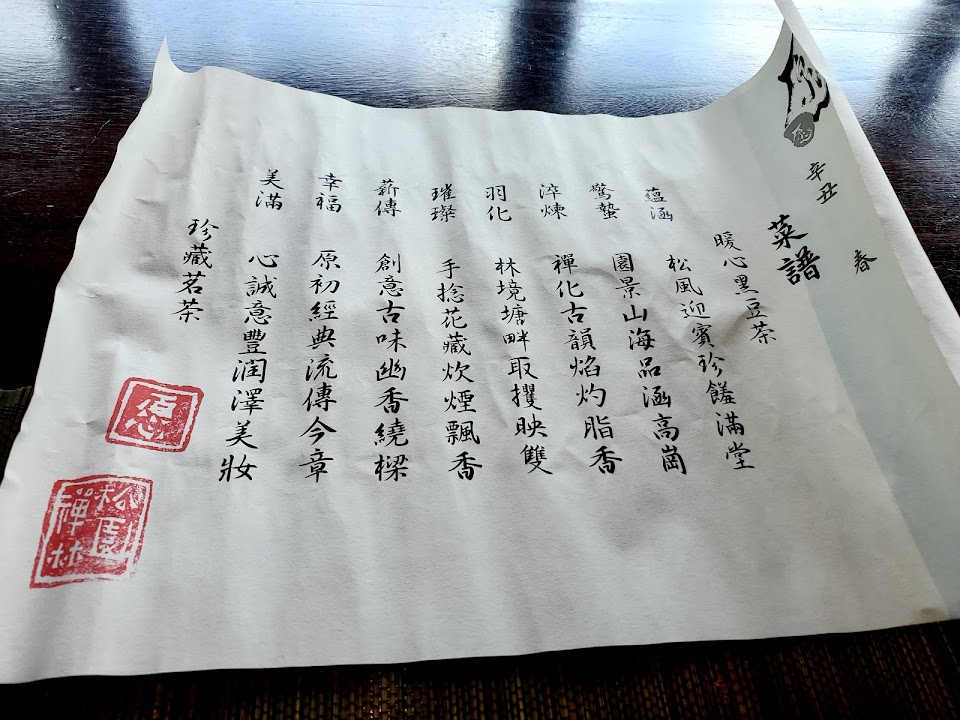 辛丑 春
菜譜
暖心黑豆茶
蘊涵 松風迎賓珍饈滿堂
驚蟄 園景山海品涵高崗
淬煉 禪化古韻焰灼脂香
羽化 林境塘畔取攫映雙
璀璨 手捻花藏炊煙飄香
薪傳 創意古味幽香繞樑
幸福 原初經典流傳今章
美滿 心誠意豐潤澤美妝
珍藏茗茶
松園禪林